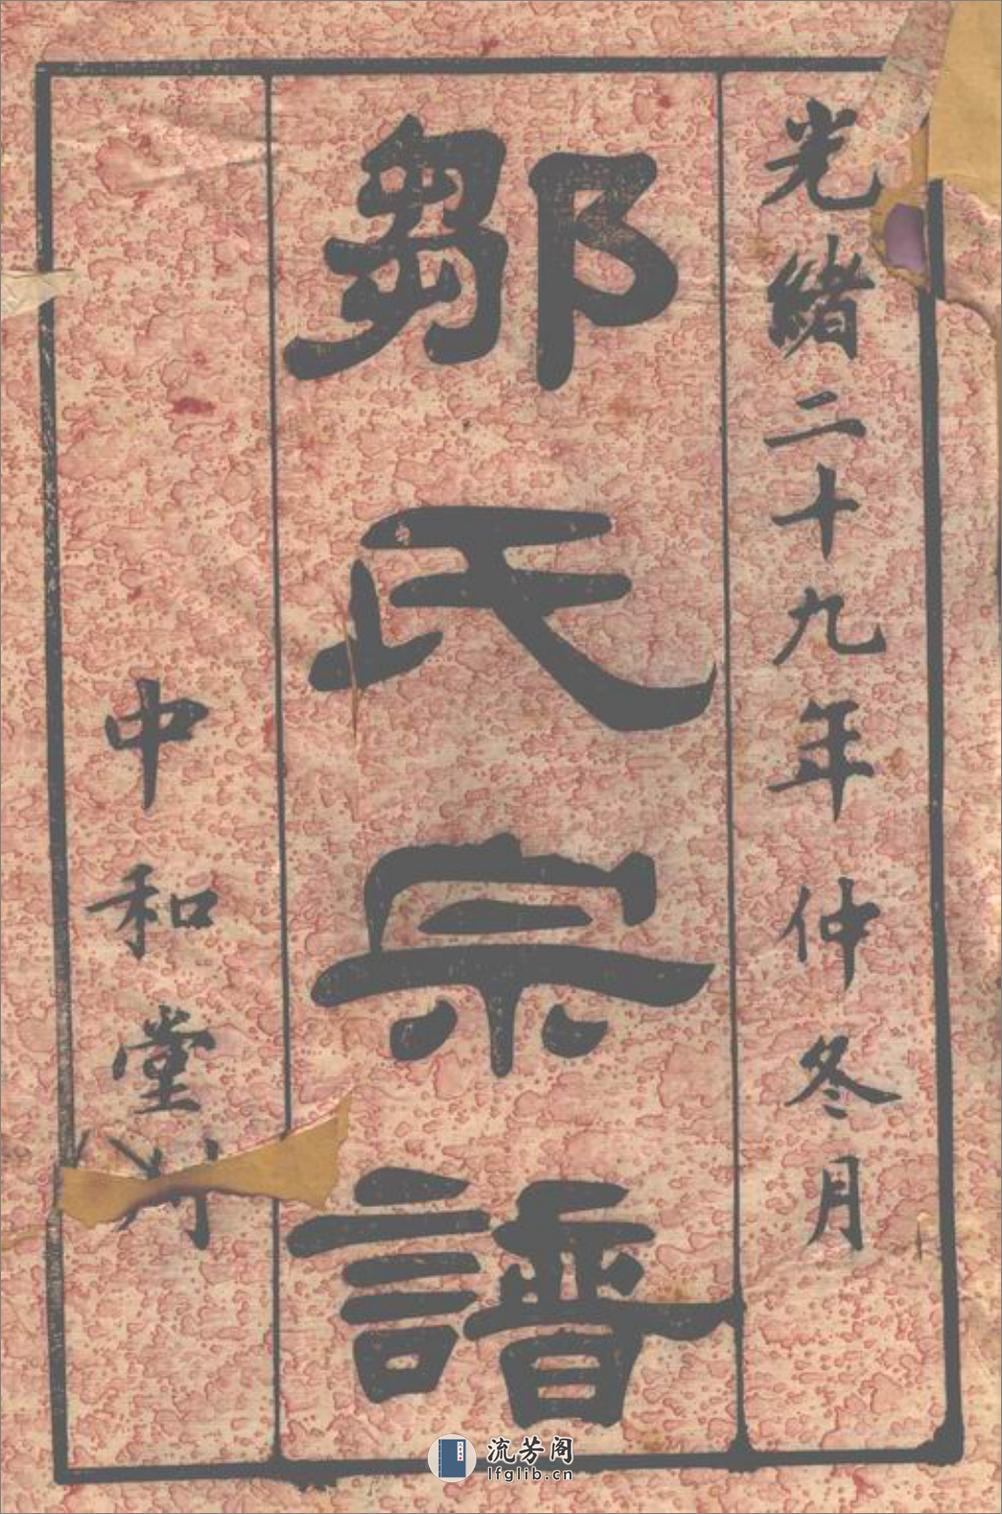 光緒二十九年仲冬月
鄒氏宗譜
中和堂
流芳阁
lfglib.cn